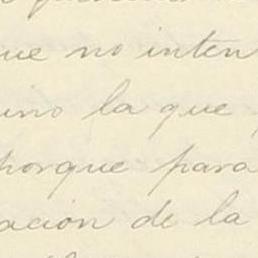 que no inten
sino la que
porque para
ación de la